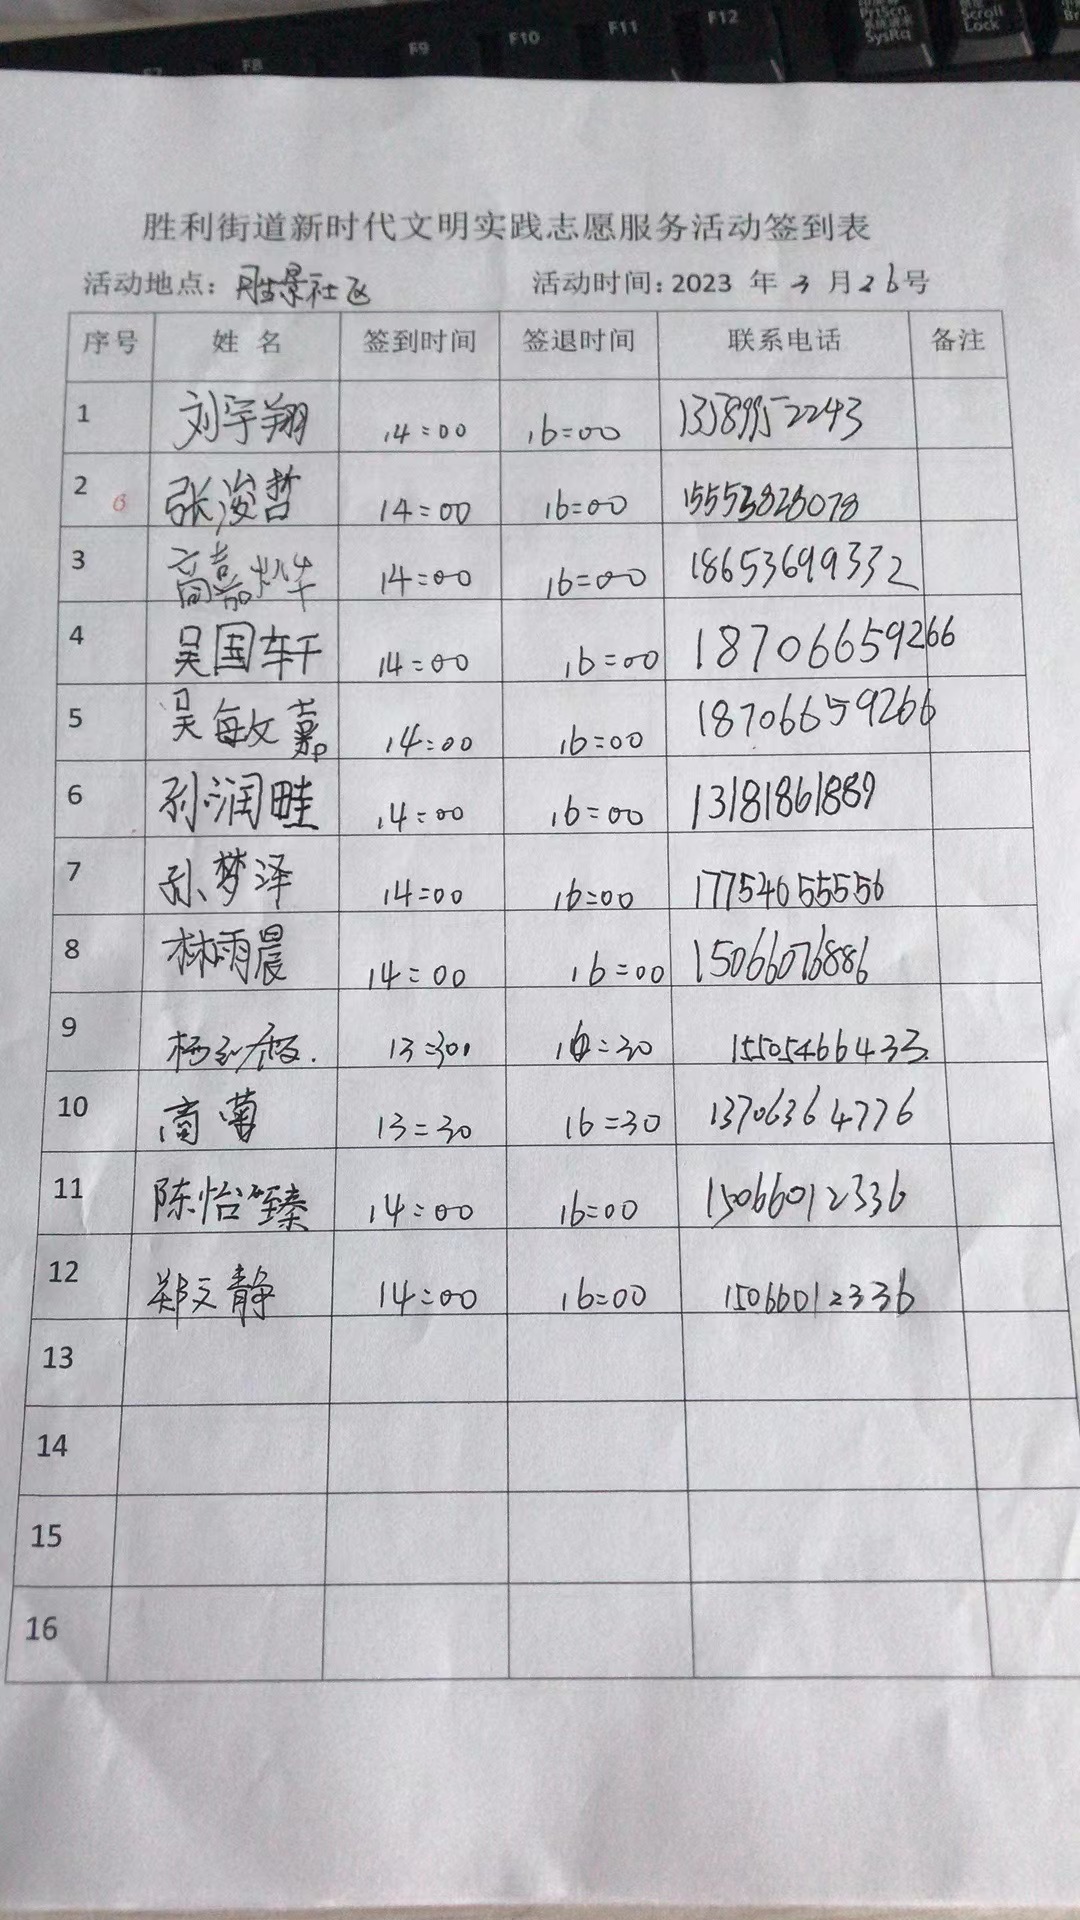 F8 F9 F10 F11 F12 PrtScn SysRq Scroll Lock
胜利街道新时代文明实践志愿服务活动签到表
活动地点：胜景社区 活动时间：2023 年 3 月 26号
序号 姓 名 签到时间 签退时间 联系电话 备注
1 刘宇翔 14:00 16:00 13589952243
2 张浚哲 14:00 16:00 15553828078
3 高嘉烨 14:00 16:00 18653699332
4 吴国轩 14:00 16:00 18706659266
5 吴敏嘉 14:00 16:00 18706659266
6 孙润畦 14:00 16:00 13181861889
7 孙梦泽 14:00 16:00 17754655556
8 林雨晨 14:00 16:00 15066076886
9 13:30 16:30 15505466433
10 商菊 13:30 16:30 13706364776
11 陈怡臻 14:00 16:00 15066012336
12 郑文静 14:00 16:00 15066012336
13
14
15
16